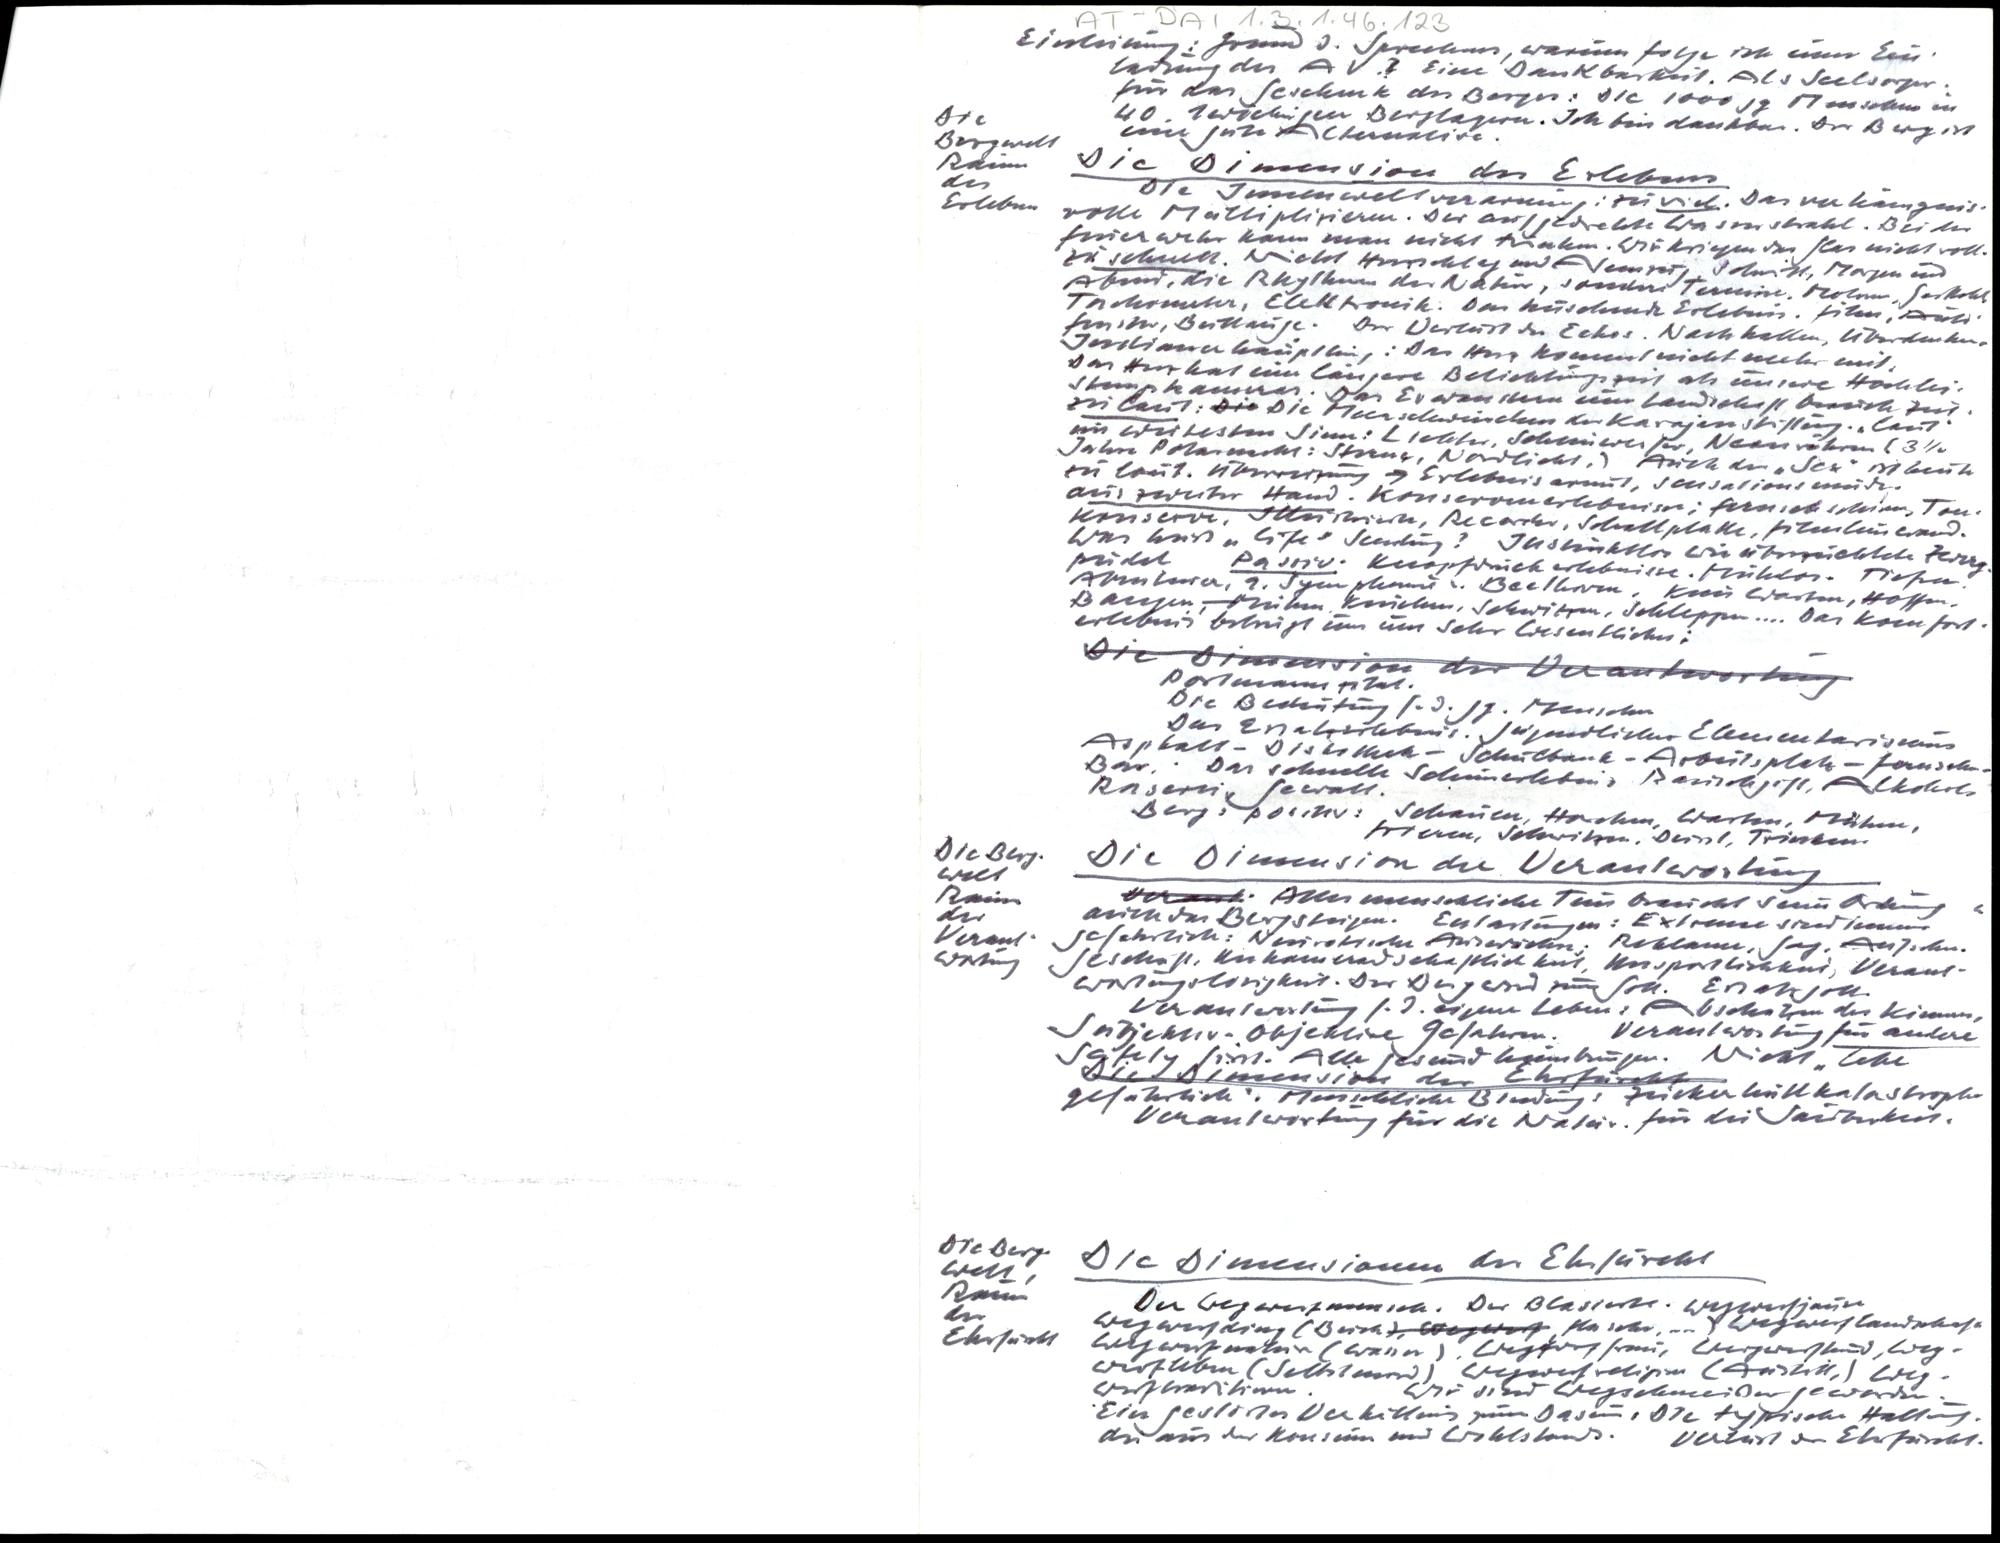 AT-DAI 1.3.1.46.123
Einleitung: Grund d. Sprechens, warum folge ich einer Ein-
ladung des AV? Eine Dankbarkeit. Als Seelsorger.
für das Geschenk des Berges: Die 1000 jg Menschen in
40 1wöchigen Berglagern. Ich bin dankbar. Der Berg ist
eine gute Alternative.
Die
Bergwelt
Raum
des
Erlebens
Die Dimension des Erlebens
Die Innenweltverarmung: zu viel. Das verhängnis-
volle Multiplizieren. Der aufgedrehte Wasserstrahl. Bei der
Feuerwehr kann man nicht trinken. Wir kriegen das Glas nicht voll.
zu schnell. Nicht Herzschlag und Atemzug, Schritt, Morgen und
Abend, die Rhythmen der Natur, sondern Termine, Motoren,
Tachometer, Elektronik. Das huschende Erlebnis. Film, Auto-
fenster, Der Verlust des Echos. Nachhallen, Überdenken.
Indianerhäuptling: Das Herz kommt nicht mehr mit.
Das Herz hat eine längere Belichtungszeit als unsere Hochlei-
stungskameras. Das Erwandern einer Landschaft braucht Zeit.
zu laut: Die Die Meerschweinchen der Karajanstiftung. "Laut"
im weitesten Sinn: Lichter, Scheinwerfer, Neonröhren (3 1/2
Jahre Polarnacht: Sterne, Nordlicht.) Auch der "Sex" ist heute
zu laut. Überreizung → Erlebnisarmut, sensationsmüde.
aus zweiter Hand. Konservenerlebnisse; Fernsehschirm, Ton-
konserve, Illustrierte, Recorder, Schallplatte, Filmleinwand.
Was heißt "Life" Sendung? Instinktlos wie überzüchtete Zwerg-
pudel Passiv. Knopfdruckerlebnisse. Mühelos. Tiefen.
Abenteuer, 9. Symphonie v. Beethoven. Kein Warten, Hoffen,
Bangen, Mühen, Keuchen, Schwitzen, Schleppen.... Das Komfort-
erlebnis betrügt uns um sehr Wesentliches:
Die Dimension der Verantwortung
Portmannzitat.
Die Bedeutung f. d. jg. Menschen
Das Ersatzerlebnis. Jugendlicher Elementarismus
Asphalt - Diskothek - Schulbank - Arbeitsplatz - Fernseh-
Bar. Das schnelle Scheinerlebnis Rauschgift, Alkohol
Raserei, Gewalt.
Berg: positiv: Schauen, Horchen, Warten, Mühen,
frieren, Schwitzen, Durst, Trinken
Die Berg-
welt
Raum
der
Verant-
wortung
Die Dimension der Verantwortung
Verant. Alles menschliche Tun braucht seine Ordnung
auch das Bergsteigen. Entartungen: Extreme sind immer
gefährlich: Neurotische Auswüchse: Reklame, Gag,
Geschäft, Unkameradschaftlichkeit, Unsportlichkeit, Verant-
wortungslosigkeit. Der Berg wird zum Gott. Ersatzgott.
Verantwortung f. d. eigene Leben: Abschätzen des Könnens,
Subjektive - Objektive Gefahren. Verantwortung für andere
Safety first. Alle gesund heimbringen. Nicht "Lebe
Die Dimension der Ehrfurcht
gefährlich". Menschliche Bindung: Zuckerhütlkatastrophe
Verantwortung für die Natur. für die Sauberkeit.
Die Berg-
welt,
Raum
der
Ehrfurcht
Die Dimensionen der Ehrfurcht
Der Wegwerfmensch. Der Blasierte.
Wegwerfding (Becher, Wegwerf, Flasche, ...) Wegwerflandschaft
Wegwerfnatur (Wasser), Wegwerffrau, Wegwerfkind, Weg-
werfleben (Selbstmord) Wegwerfreligion (Austritt,) Weg-
werftraditionen. Wir sind Wegschmeißer geworden.
Ein gestörtes Verhältnis zum Dasein: Die typische Haltung.
die aus der Konsum und Wohlstands. Verlust der Ehrfurcht.